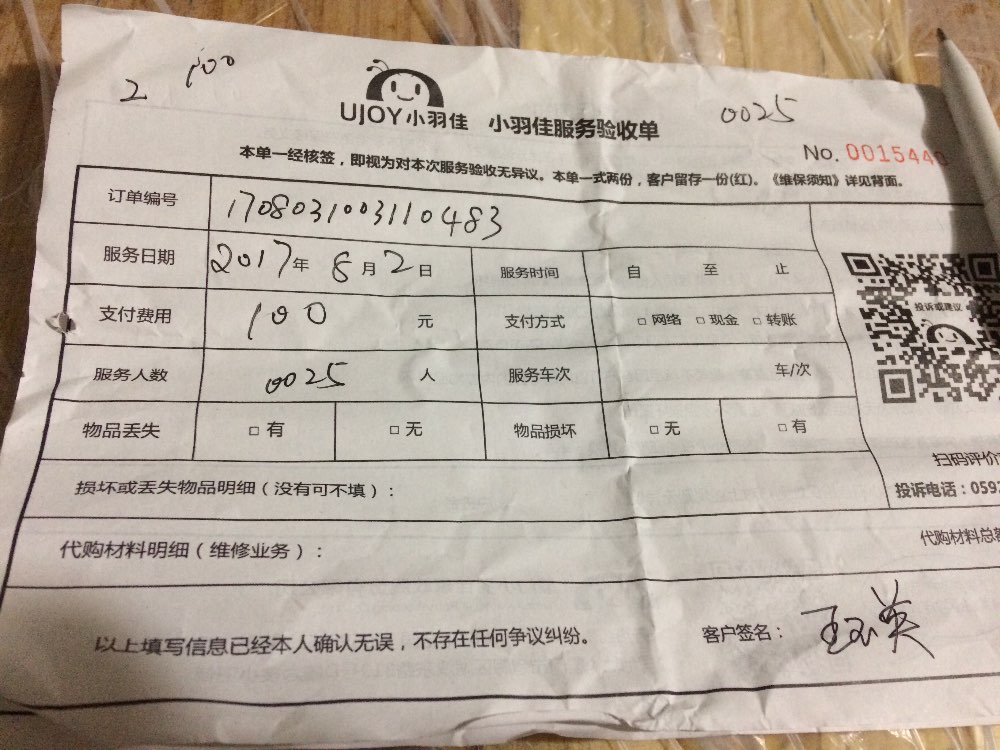 2 100
0025
UJOY小羽佳 小羽佳服务验收单
No. 0015440
本单一经核签，即视为对本次服务验收无异议。本单一式两份，客户留存一份(红)。《维保须知》详见背面。
订单编号 1708031003110483
服务日期 2017年 8月2日 服务时间 自 至 止
支付费用 100 元 支付方式 □ 网络 □ 现金 □ 转账
服务人数 0025 人 服务车次 车/次
物品丢失 □ 有 □ 无 物品损坏 □ 无 □ 有
投诉或建议
扫码评价
投诉电话：059
损坏或丢失物品明细（没有可不填）：
代购材料明细（维修业务）： 代购材料总
以上填写信息已经本人确认无误，不存在任何争议纠纷。
客户签名： 王玉英